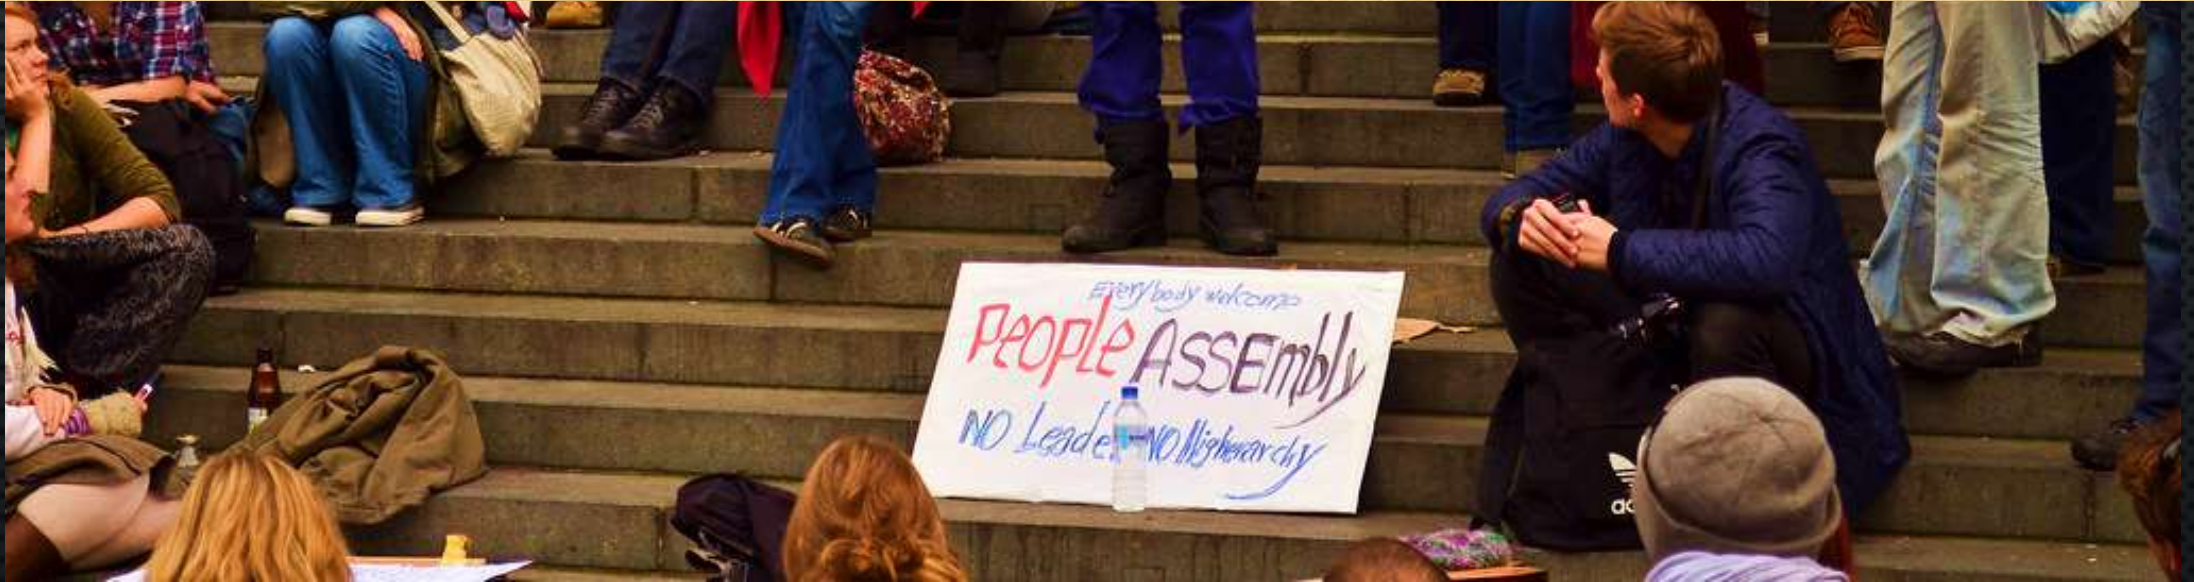 Everybody welcome
PEOPLE ASSEmbly
NO Leader NO Higherarchy